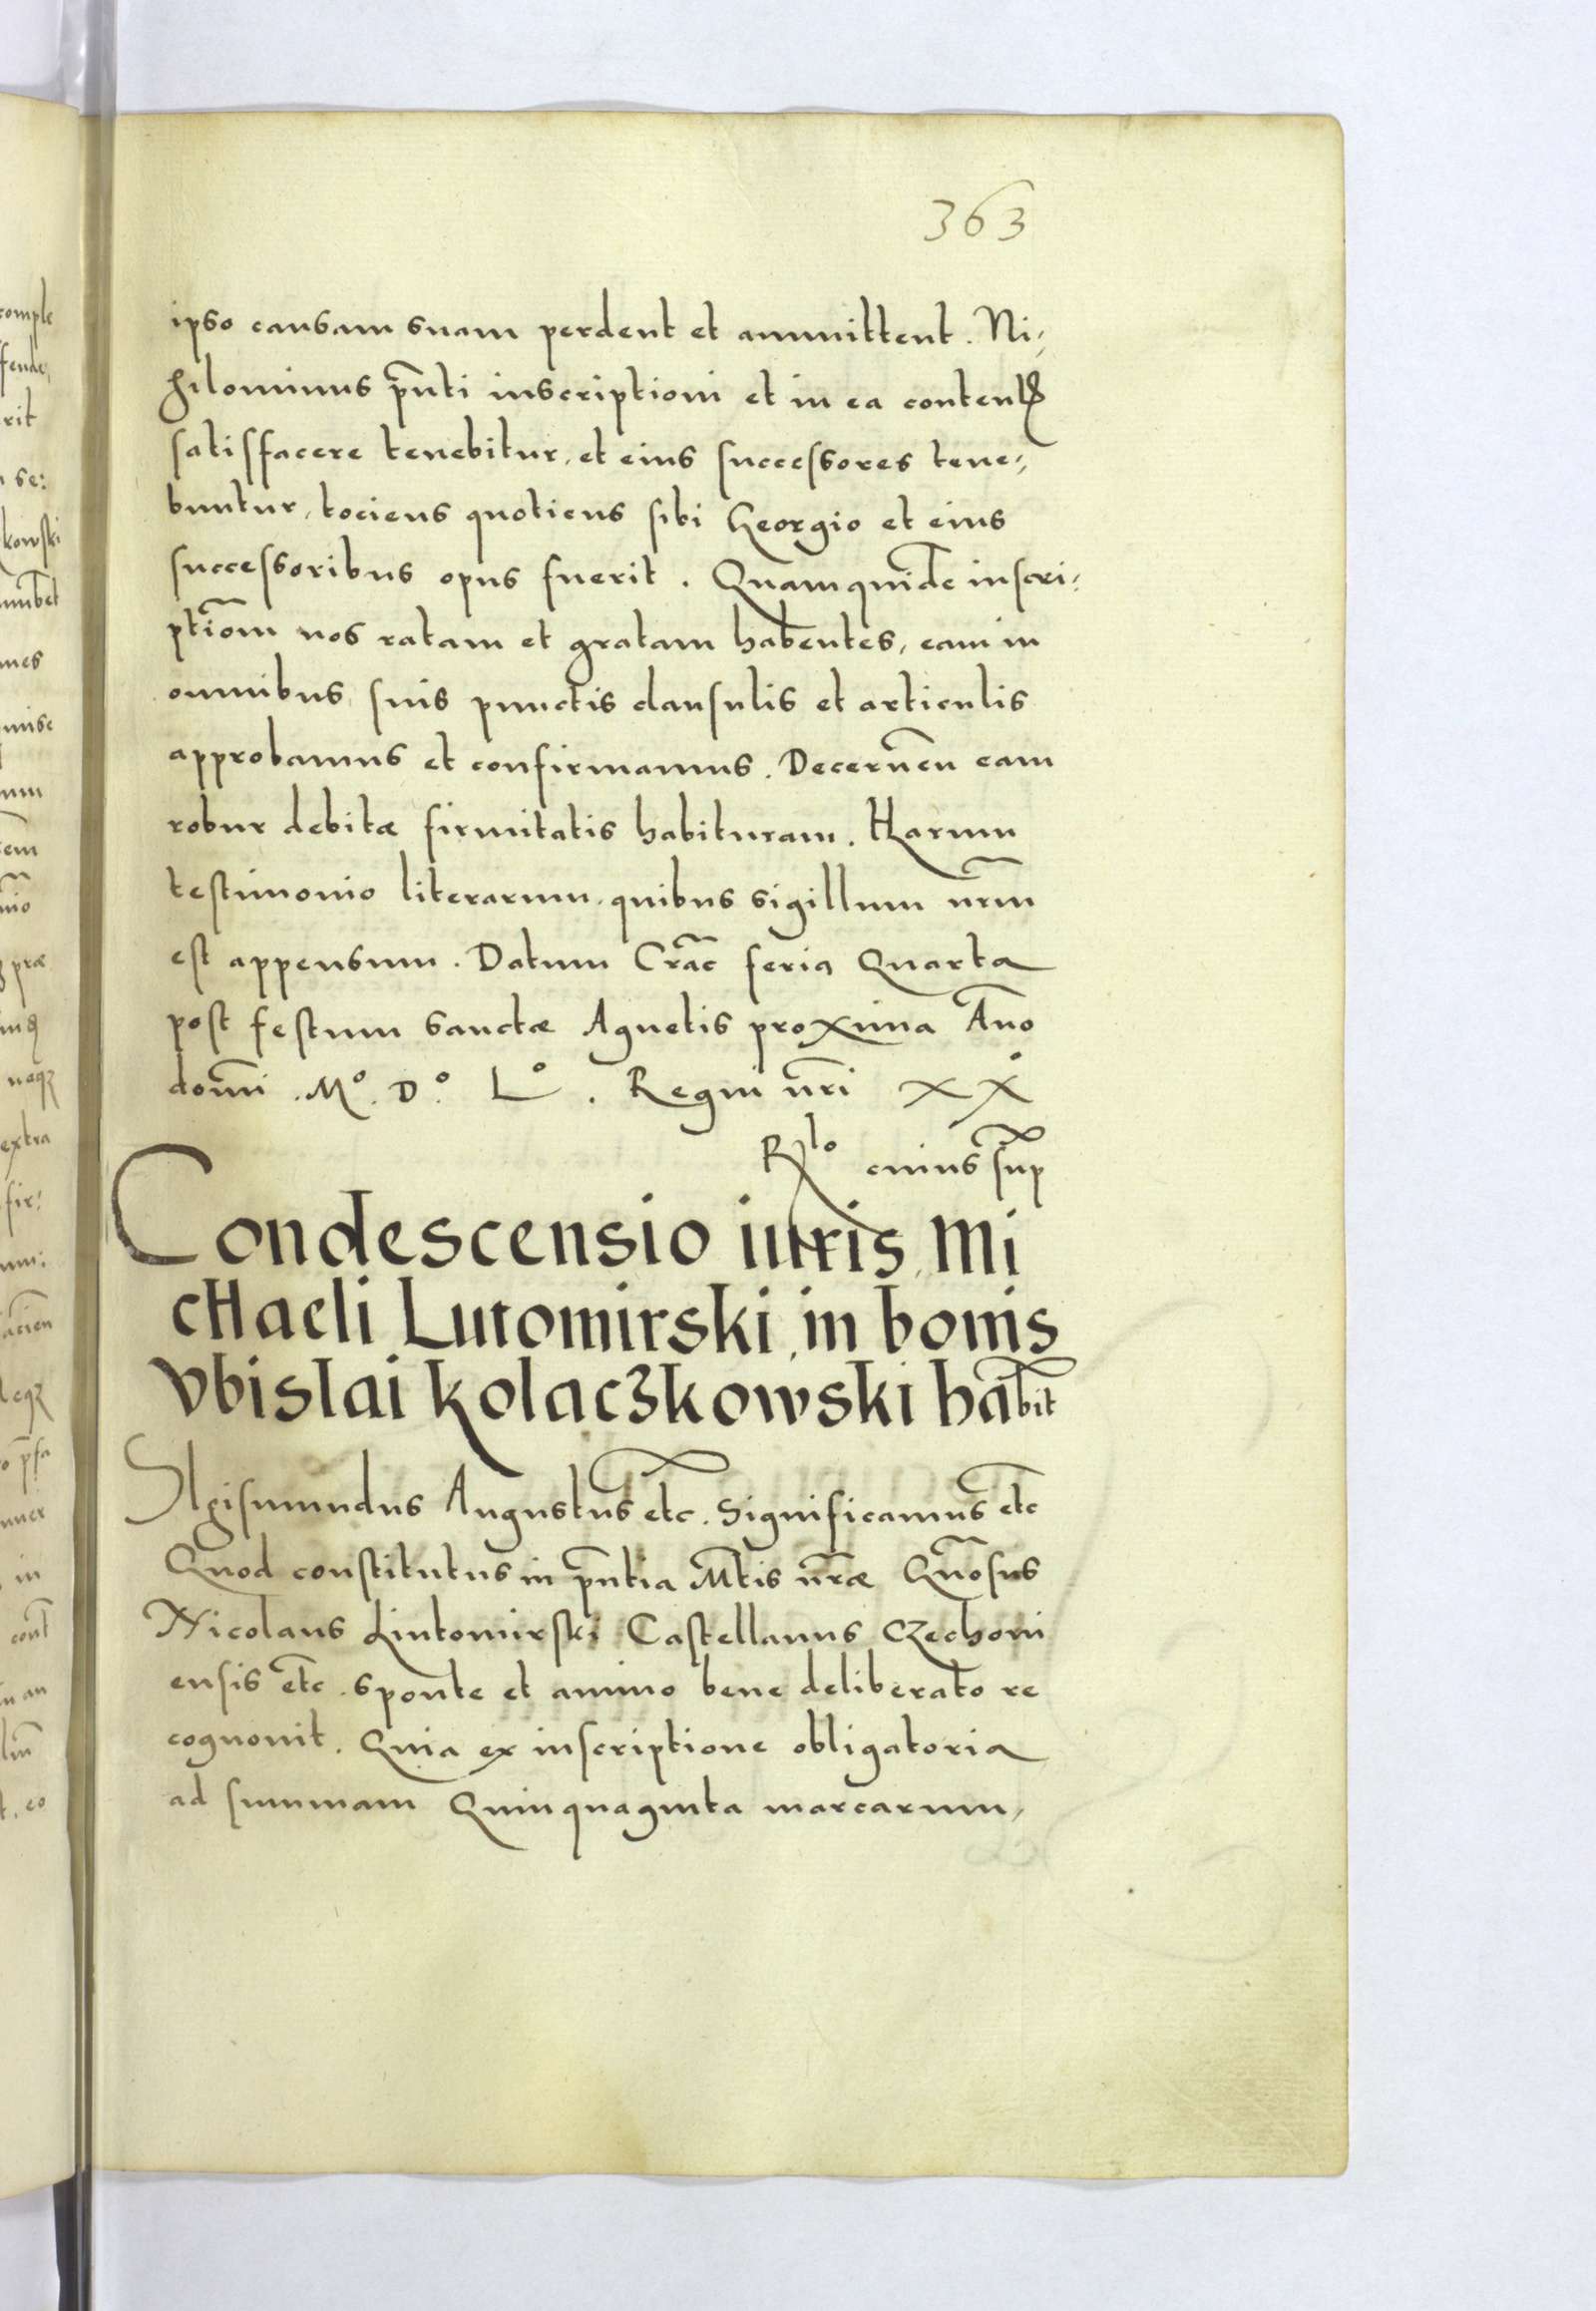 363
ipso causam suam perdent et ammittent. Ni-
hilominus pñti inscriptioni et in ea contentis
satisfacere tenebitur, et eius successores tene-
buntur, tociens quotiens sibi Georgio et eius
successoribus opus fuerit. Quamquidē inscri-
ptiom̄ nos ratam et gratam habentes, eam in
omnibus suis punctis clausulis et articulis
approbamus et confirmamus. Decerneñ eam
robur debitæ firmitatis habituram. Harum
testimonio literarum, quibus sigillum nr̄m
est appensum. Datum Crac̄ feria Quarta
post festum sanctæ Agnetis proxima Año
domī .Mº. Dº. Lº. Regni nr̄i XXº
Rlo cuius sup̄
Condescensio iuris Mi
cHaeli Lutomirski, in bonis
Vbislai Kolaczkowski habit
SIgismundus Augustus etc. Significamus etc
Quod constitutus in pñtia Mtis nr̄æ Gñosus
Nicolaus Liutomirski Castellanus Czechovi
ensis etc. sponte et animo bene deliberato re
cognovit. Quia ex inscriptione obligatoria
ad summam Quinquaginta marcarum,